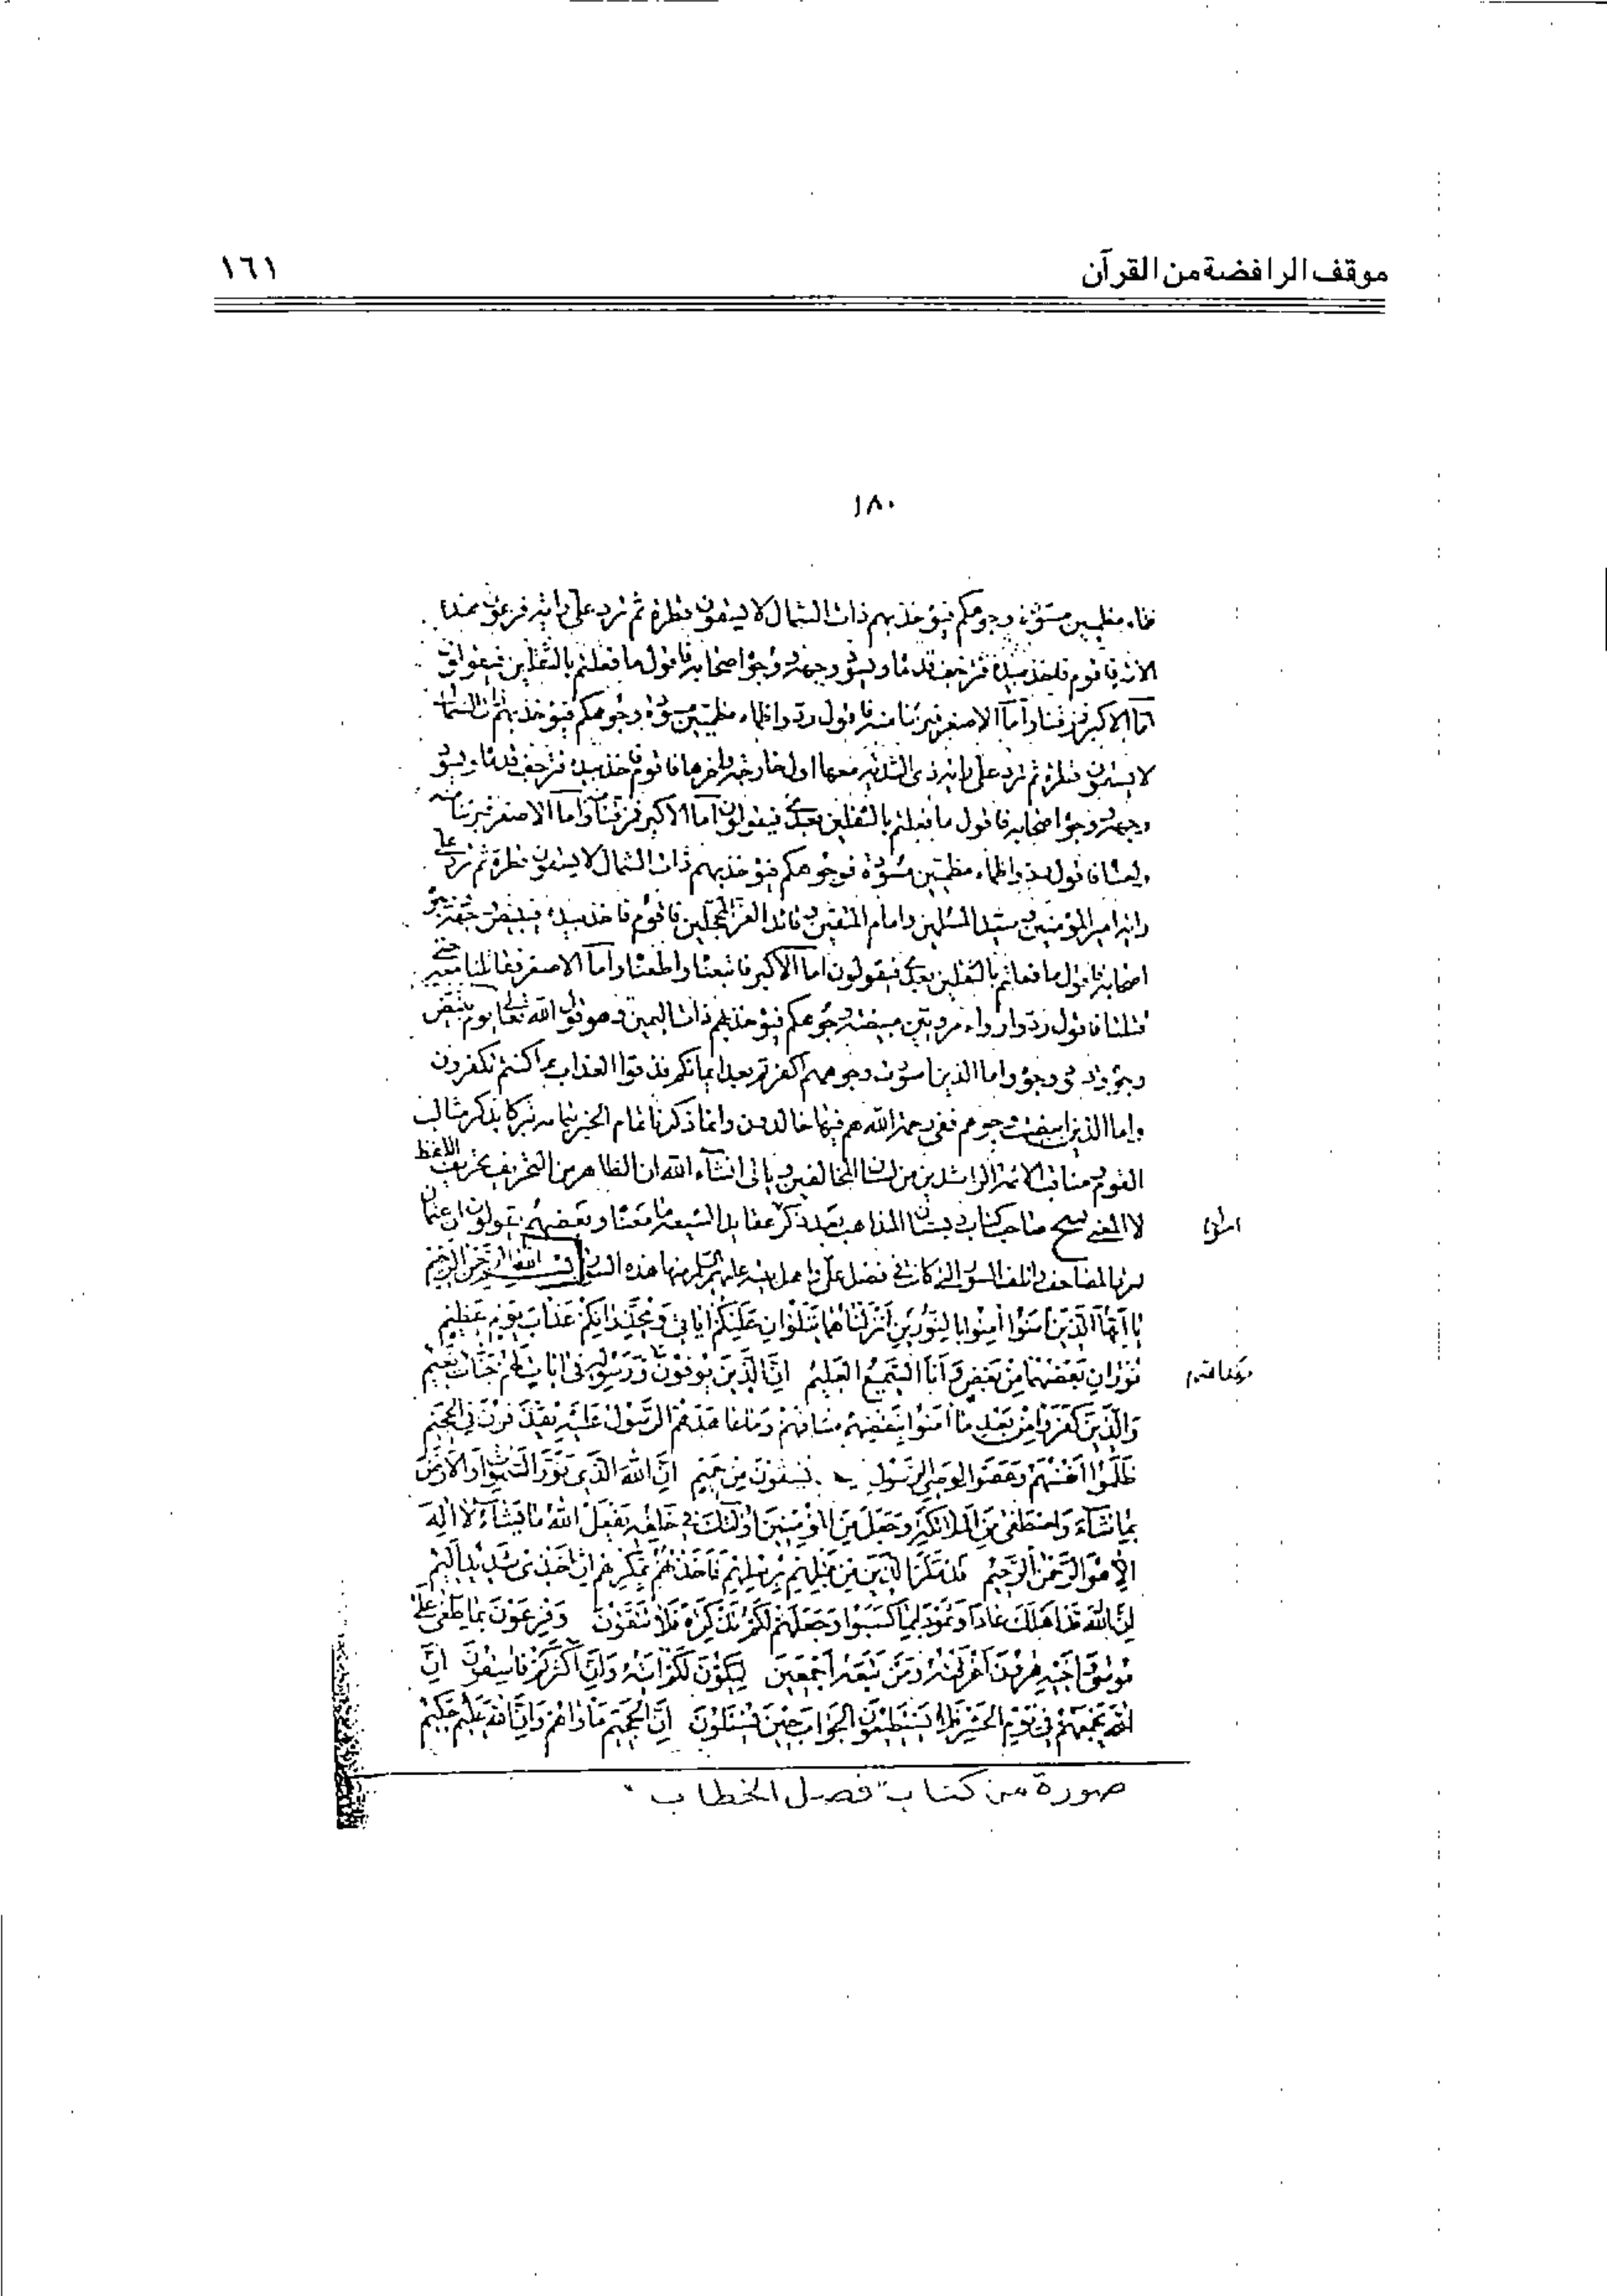 موقف الرافضة من القرآن ١٦١
١٨٠
ظماء مظمئين مسودة وجوهكم فيؤخذ بهم ذات الشمال لا يسقون قطرة ثم ترد على راية فرعون هذه
الامة فاقوم فاخذ بيده فترجف قدماه ويسود وجهه ووجوه اصحابه فاقول ما فعلتم بالثقلين فيقولون
اما الاكبر فمزقنا واما الاصغر فبرئنا منه فاقول ردوا ظماء مظمئين مسودة وجوهكم فيؤخذ بهم ذات الشمال
لا يسقون قطرة ثم ترد على راية ذي الثدية معها اول خارجة واخرها فاقوم فاخذ بيده فترجف قدماه ويسود
وجهه ووجوه اصحابه فاقول ما فعلتم بالثقلين بعدي فيقولون اما الاكبر فمزقنا واما الاصغر فبرئنا منه
ولعناه فاقول ردوا ظماء مظمئين مسودة وجوهكم فيؤخذ بهم ذات الشمال لا يسقون قطرة ثم ترد على
راية امير المؤمنين وسيد المسلمين وامام المتقين وقائد الغر المحجلين فاقوم فاخذ بيده فيبيض وجهه ووجوه
اصحابه فاقول ما فعلتم بالثقلين بعدي فيقولون اما الاكبر فاتبعنا واطعنا واما الاصغر فقاتلنا معه حتى
قتلنا فاقول ردوا رواء مرويين مبيضة وجوهكم فيؤخذ بهم ذات اليمين وهو قول الله تعالى يوم تبيض
وجوه وتسود وجوه واما الذين اسودت وجوههم اكفرتم بعد ايمانكم فذوقوا العذاب بما كنتم تكفرون
واما الذين ابيضت وجوههم ففي رحمة الله هم فيها خالدون وانما ذكرنا تمام الخبر تيمنا وتبركا بذكر مثالب
القوم ومناقب الائمة الراشدين من لسان المخالفين وياتى انشاء الله ان الظاهر من التحريف تحريف اللفظ
لا المعنى صاحب كتاب دبستان المذاهب بعد ذكر عقايد الشيعة ما معناه وبعضهم يقولون ان عثمان
احرق المصاحف واتلف السور التي كانت في فضل على واهل بيته عليهم السلم منها هذه السورة بسم الله الرحمن الرحيم
يا ايها الذين امنوا امنوا بالنورين انزلناهما يتلوان عليكم اياتي ويحذرانكم عذاب يوم عظيم
نوران بعضهما من بعض وانا السميع العليم ان الذين يوفون ورسوله في ايات لهم جنات نعيم
والذين كفروا من بعد ما امنوا بنقضهم ميثاقهم وما عاهدهم الرسول عليه يقذفون في الجحيم
ظلموا انفسهم وعصوا لوصي الرسول يسقون من حميم ان الله الذي نور السموات والارض
بما شاء واصطفى من الملائكة وجعل من المؤمنين اولئك في خلقه يفعل الله ما يشاء لا اله
الا هو الرحمن الرحيم قد مكر الذين من قبلهم برسلهم فاخذتهم بمكرهم ان اخذي شديد اليم
ان الله قد اهلك عادا وثمود بما كسبوا وجعلهم لكم تذكرة فلا تتقون وفرعون بما طغى على
موسى واخيه هرون اغرقته ومن تبعه اجمعين ليكون لكم اية وان اكثركم فاسقون ان
الله يجمعهم في يوم الحشر فلا يستطيعون الجواب حين يسئلون ان الجحيم ماواهم وان الله عليم حكيم
صورة من كتاب "فصل الخطاب"